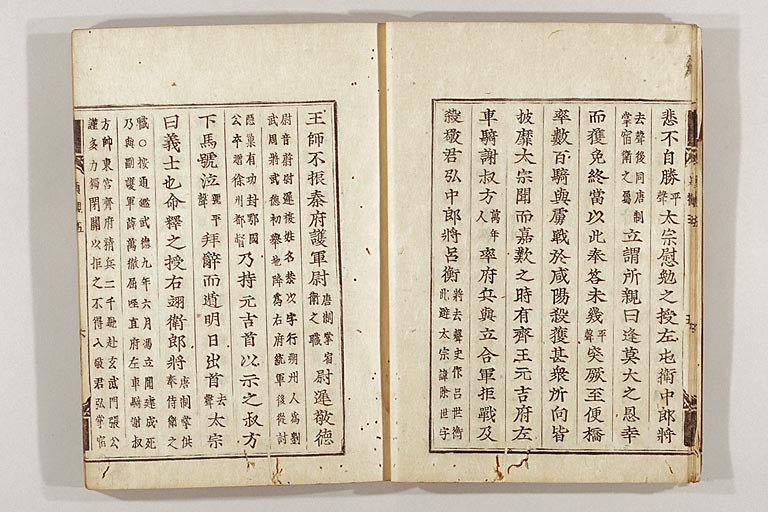 悲不自勝平聲太宗慰勉之授左屯衛中郎將
去聲後同唐制掌宿衛之屬立謂所親曰逢莫大之恩幸
而獲免終當以此奉答未幾平聲突厥至便橋
率數百騎與虜戰於咸陽殺獲甚衆所向皆
披靡太宗聞而嘉歎之時有齊王元吉府左
車騎謝叔方萬年人率府兵與立合軍拒戰及
殺敬君弘中郎將呂衡將去聲史作呂世衡此避太宗諱除世字
王師不振秦府護軍尉唐制掌宿衛之職尉遲敬德
尉音蔚尉遲複姓名恭以字行朔州人爲劉
武周將武德初舉地降爲右府統軍後從討
隱巢有功封鄂國公卒贈徐州都督乃持元吉首以示之叔方
下馬號泣號平聲拜辭而遁明日出首去聲太宗
曰義士也命釋之授右翊衛郎將唐制掌供奉侍衛之
職○按通鑑武德九年六月馮立聞建成死
乃與副護軍薛萬徹屈咥直府左車騎謝叔
方帥東宮齊府精兵二千馳赴玄武門張公
謹多力獨閉關以拒之不得入敬君弘掌宿